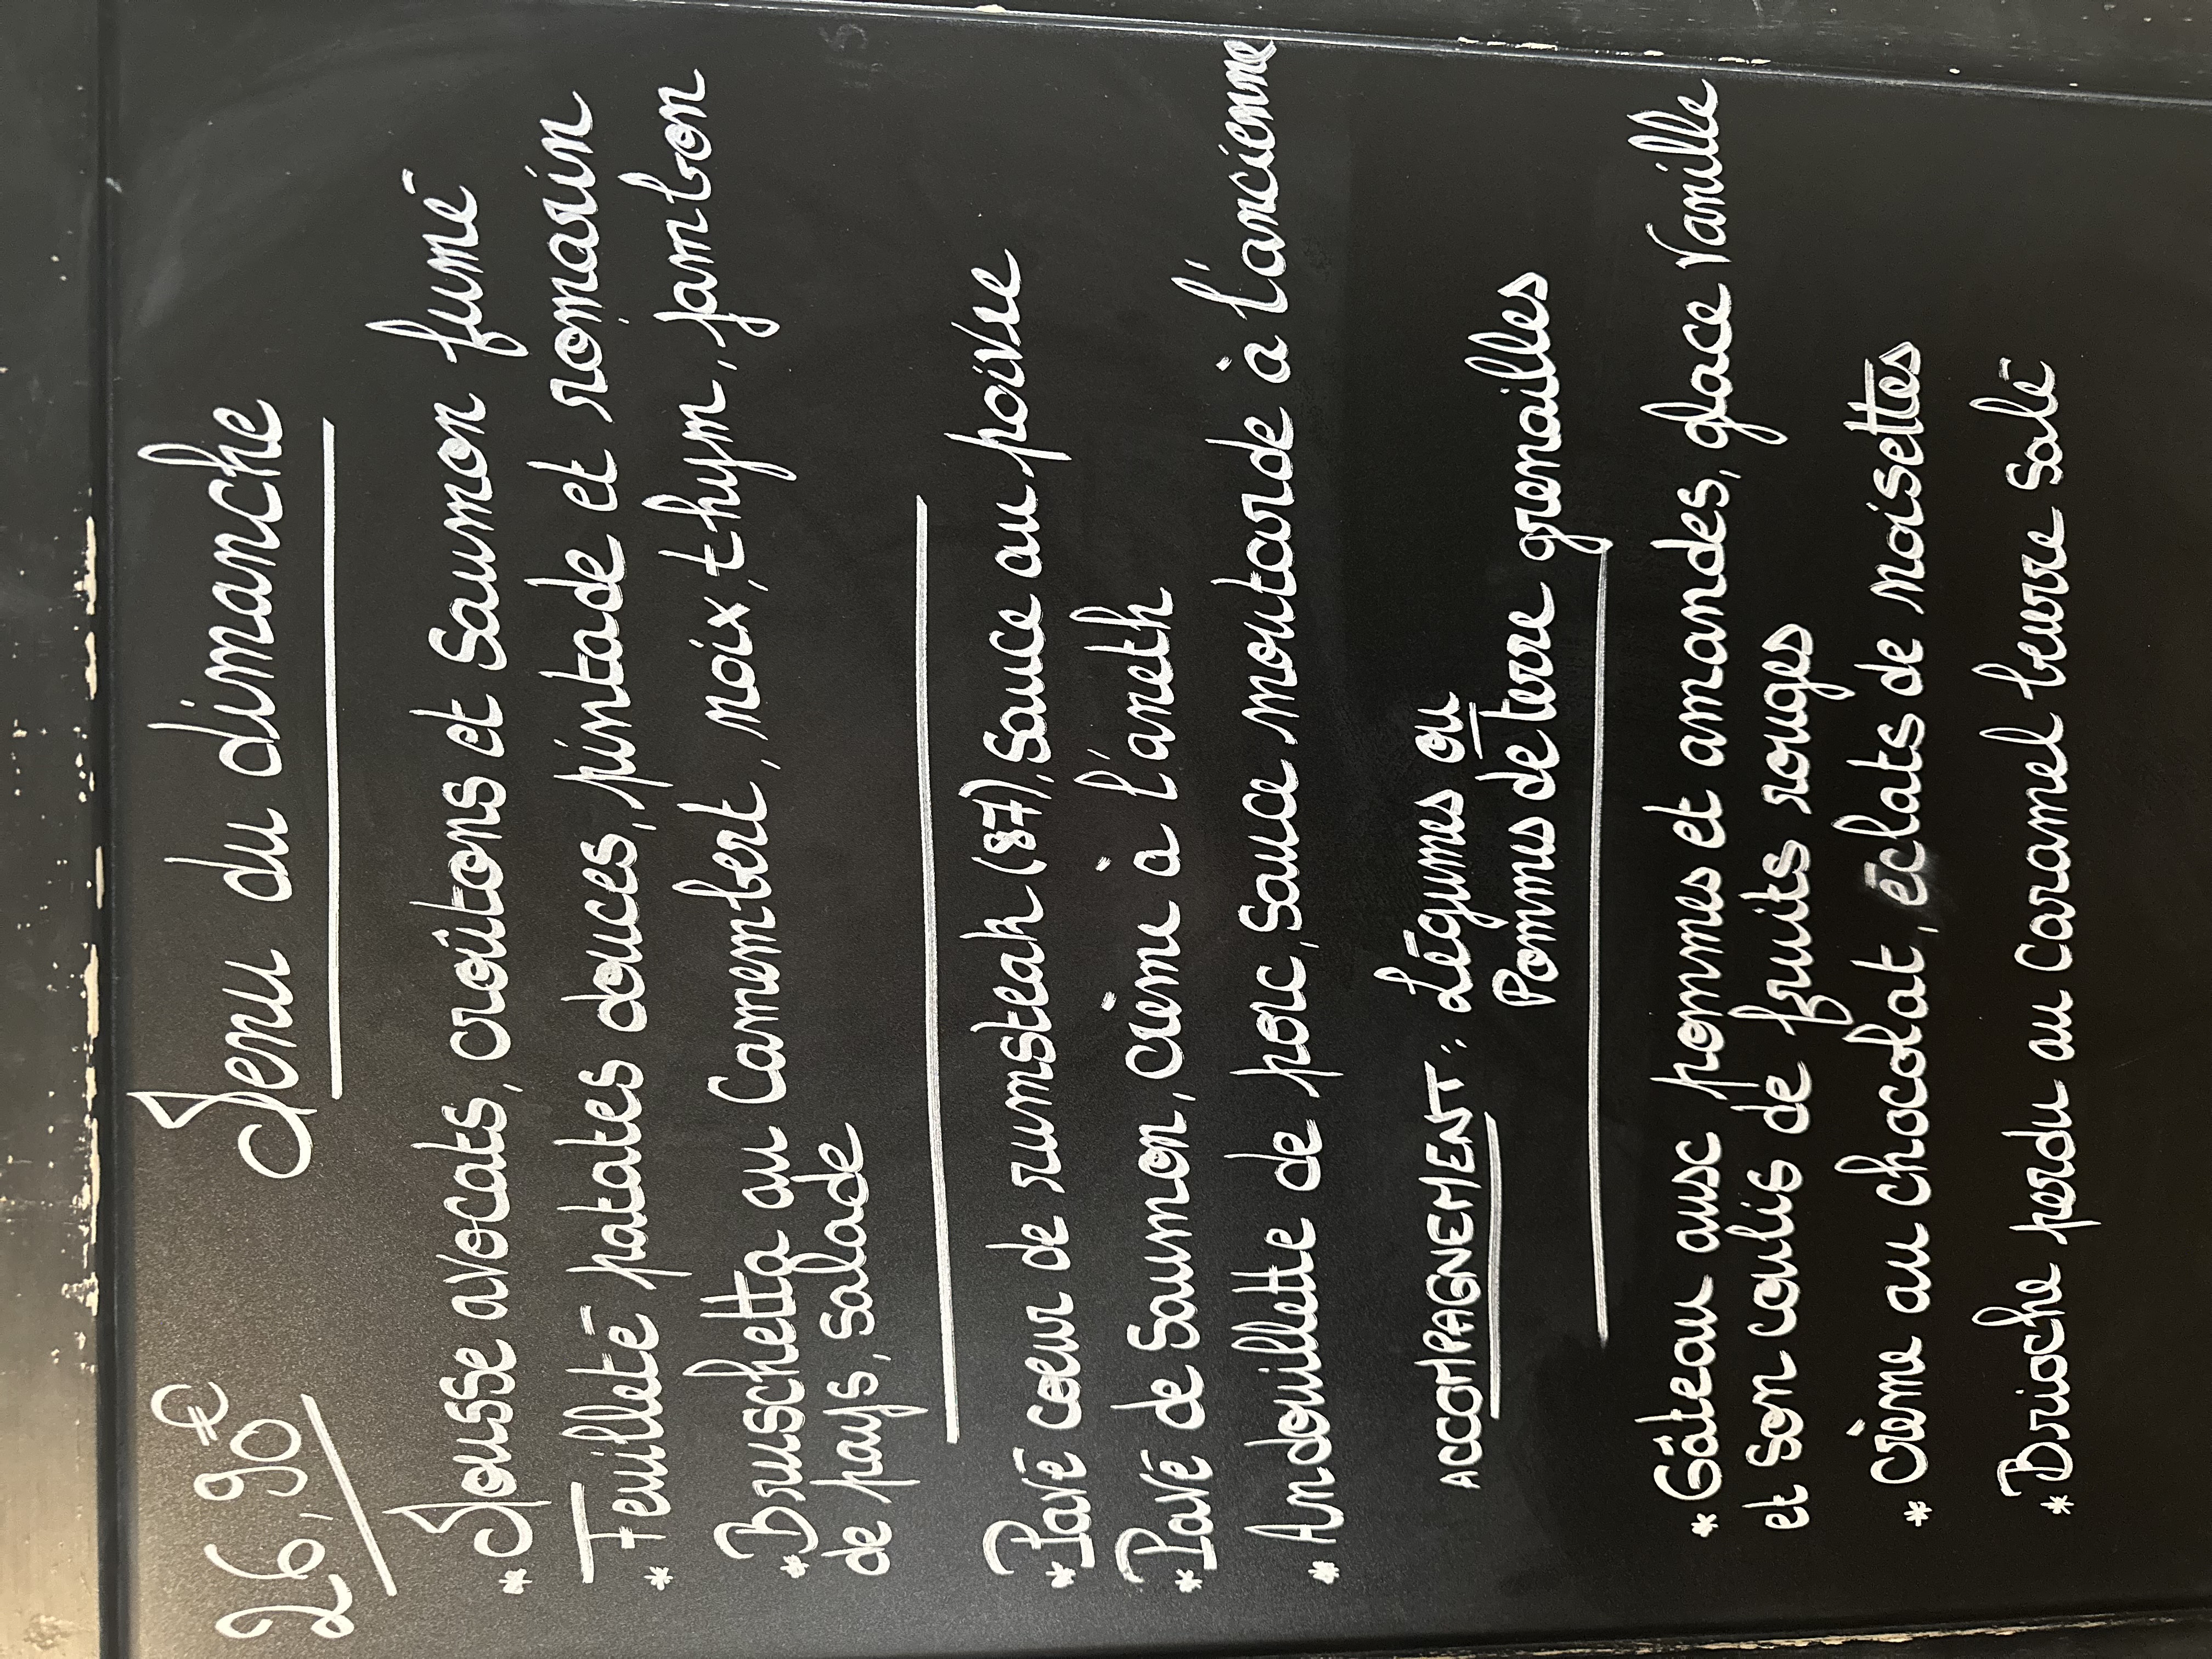 26,90€ Menu du dimanche
* Mousse avocats, croûtons et Saumon fumé
* Feuilleté patates douces, pintade et romarin
* Bruschetta au Camembert, noix, thym, jambon
de pays, salade
* Pavé coeur de rumsteak (87), Sauce au poivre
* Pavé de Saumon, crème à l'aneth
* Andouillette de porc, Sauce moutarde à l'ancienne
ACCOMPAGNEMENT : Légumes ou
Pommes de terre grenailles
* Gâteau aux pommes et amandes, glace Vanille
et son coulis de fruits rouges
* Crème au chocolat, éclats de noisettes
* Brioche perdu au caramel beurre Salé